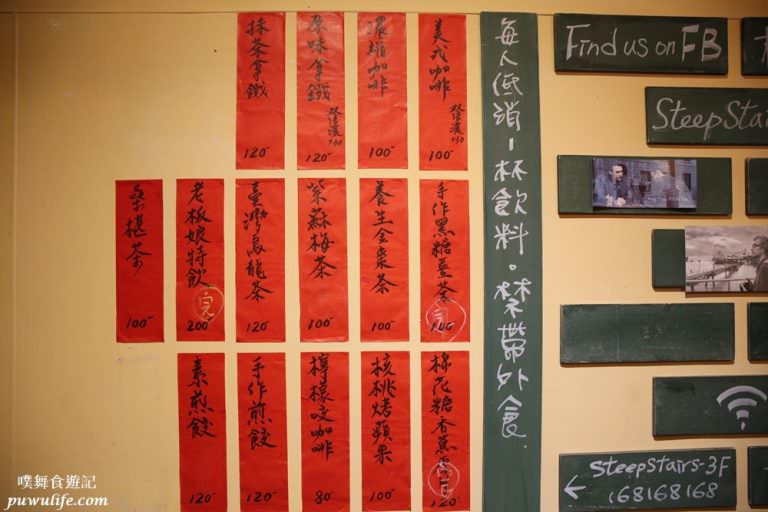 每人低消一杯飲料。禁帶外食
美式咖啡 雙倍濃+30
100
濃縮咖啡
100
原味拿鐵 雙倍濃+30
120
抹茶拿鐵
120
手作黑糖薑茶
完
100
養生金棗茶
100
紫蘇梅茶
100
臺灣烏龍茶
120
老板娘特飲
完
200
桑椹茶
100
棉花糖香蕉
120
核桃烤蘋果
100
檸檬咬咖啡
80
手作煎餃
120
素煎餃
120
Find us on FB
SteepStai
SteepStairs-3F
168168168
噗舞食遊記
puwulife.com